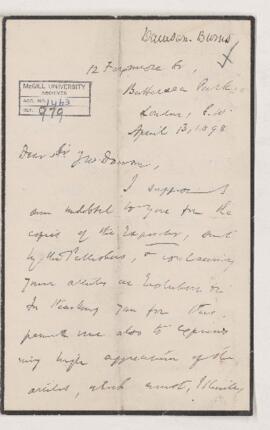 Dawson. Burns
12 Ferpmore Rd,
Battersea Park,
London, S.W.
April 13, 1898
McGILL UNIVERSITY
ARCHIVES
ACC. NO. 1463
REF. 979
Dear Sir J W Dawson,
I suppose I
am indebted to you for the
copies of the Expositor, sent
by the Publishers, & containing
your articles on Evolution &c.
In thanking you for this,
permit me also to express
my high appreciation of the
articles, which must, I think,